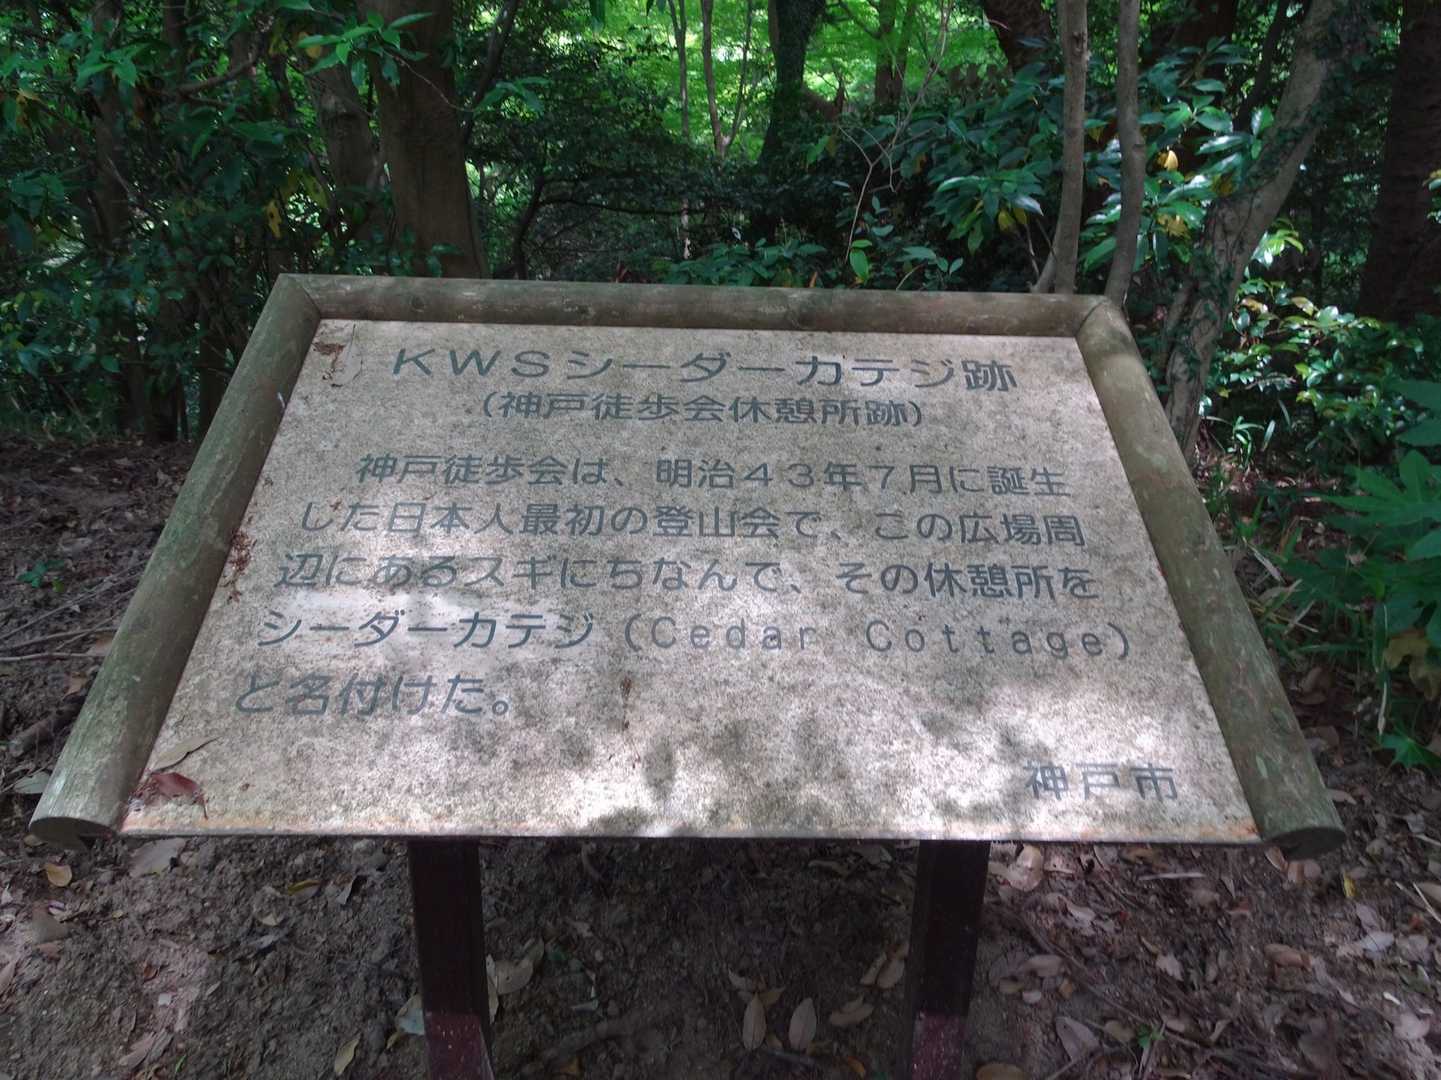 KWSシーダーカテジ跡
(神戸徒歩会休憩所跡)
神戸徒歩会は、明治43年7月に誕生
した日本人最初の登山会で、この広場周
辺にあるスギにちなんで、その休憩所を
シーダーカテジ(Cedar Cottage)
と名付けた。
神戸市